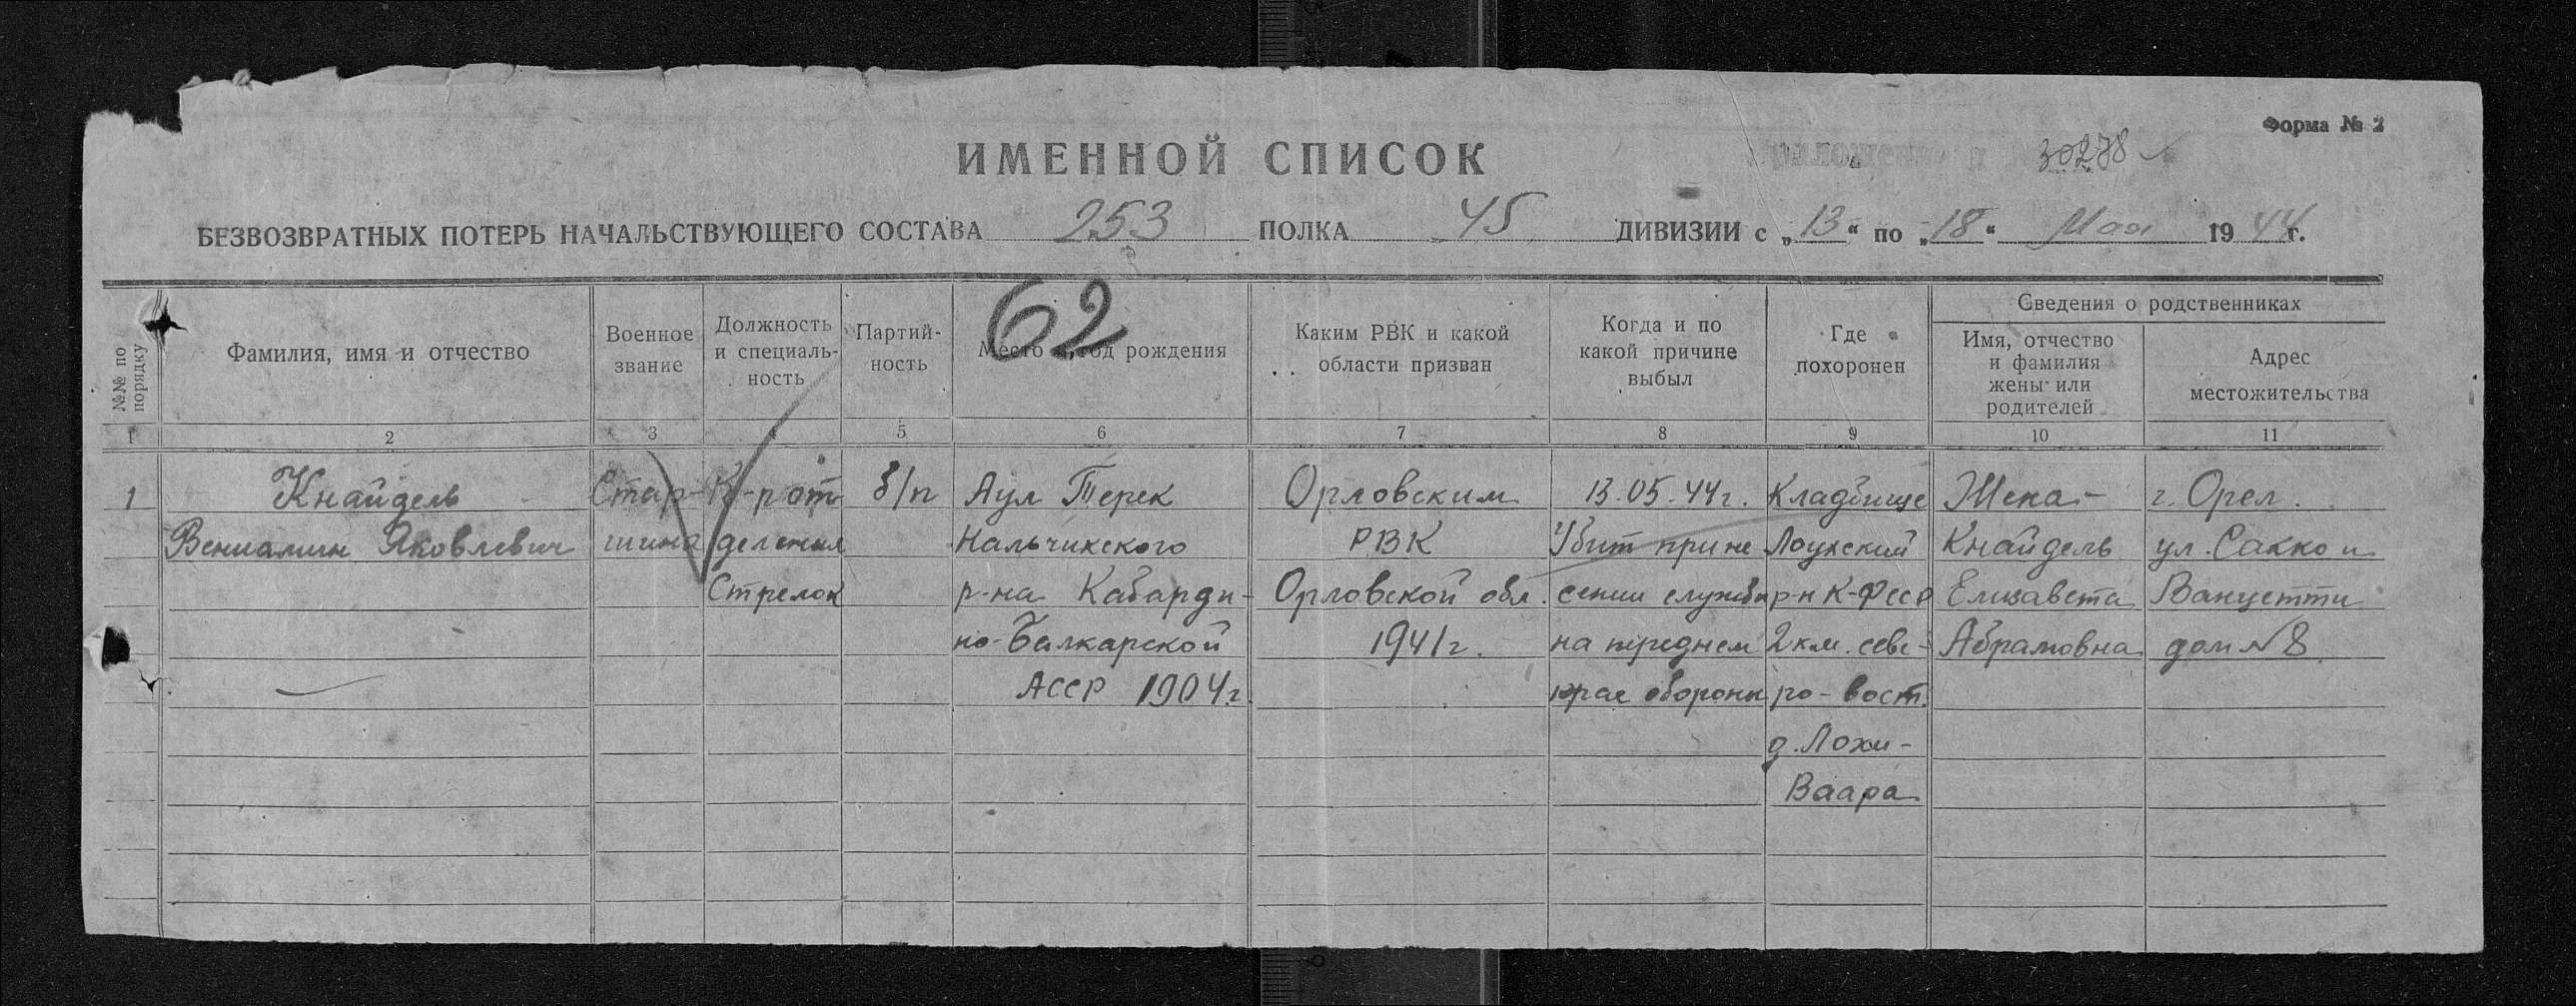 Форма № 2
ИМЕННОЙ СПИСОК
30278
БЕЗВОЗВРАТНЫХ ПОТЕРЬ НАЧАЛЬСТВУЮЩЕГО СОСТАВА 253 ПОЛКА 45 ДИВИЗИИ с „13“ по „18“ Мая 1944 г.
62
№№ по порядку
Фамилия, имя и отчество
Военное звание
Должность и специаль-ность
Партий-ность
Место и год рождения
Каким РВК и какой области призван
Когда и по какой причине выбыл
Где похоронен
Сведения о родственниках
Имя, отчество и фамилия жены или родителей
Адрес местожительства
1 2 3 4 5 6 7 8 9 10 11
1 Кнайдель Стар- К-р от- б/п Аул Терек Орловским 13.05.44г. Кладбище Жена- г. Орел.
Вениамин Яковлевич шина деления Нальчикского РВК Убит при не Лоухский Кнайдель ул. Сакко и
Стрелок р-на Кабарди- Орловской обл. сении службы р-н К-Фсср Елизавета Ванцетти
но-Балкарской 1941г. на переднем 2 км. севе- Абрамовна дом №8
АССР 1904г. крае обороны ро-вост.
д. Лохи-
Ваара